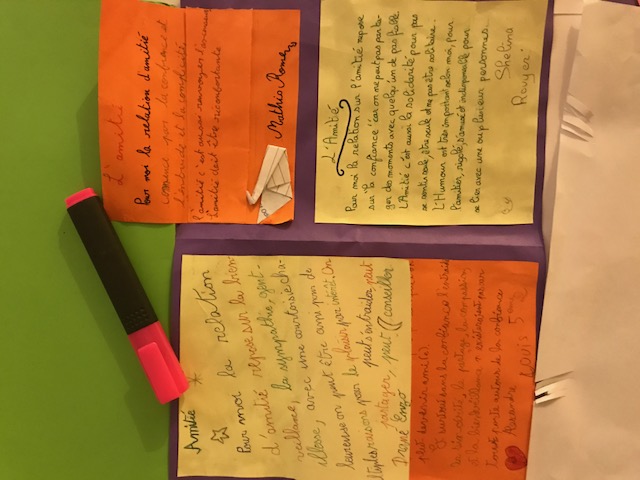 L'amitié
Pour moi la relation d'amitié
commence par la confiance et
l'entraide et la complicité
l'amitié c'est aussi
l'amitié doit être réconfortante
Mathis Romer
L'Amitié
Pour moi la relation sur l'amitié repose
sur la confiance car on ne peut pas parta-
ger des moments avec quelqu'un de pas fiable
L'Amitié c'est aussi la solidarité pour pas
se sentir seul, être seul et ne pas être solitaire.
L'Humour est très important selon moi, pour
l'amitier, rigolé, s'amusé et indispensable pour
se lier avec une ou plusieur personnes.
Shelina
Rouyer
Amitié
Pour moi la relation
d'amitié repose sur la bien-
veillance, la sympathie, gent-
illesse, avec une courtoisie cha-
leureuse on peut être amis pour de
multiples raisons pour le plaisir par intérêt. On
peut s'entraider, peut
partager, peut conseiller
Dramé Enzo
amitié
la confiance l'entraide
la complicité, le partage, la compassion
la bienveillance
autour de la confiance
Alexandre LOUIS 5